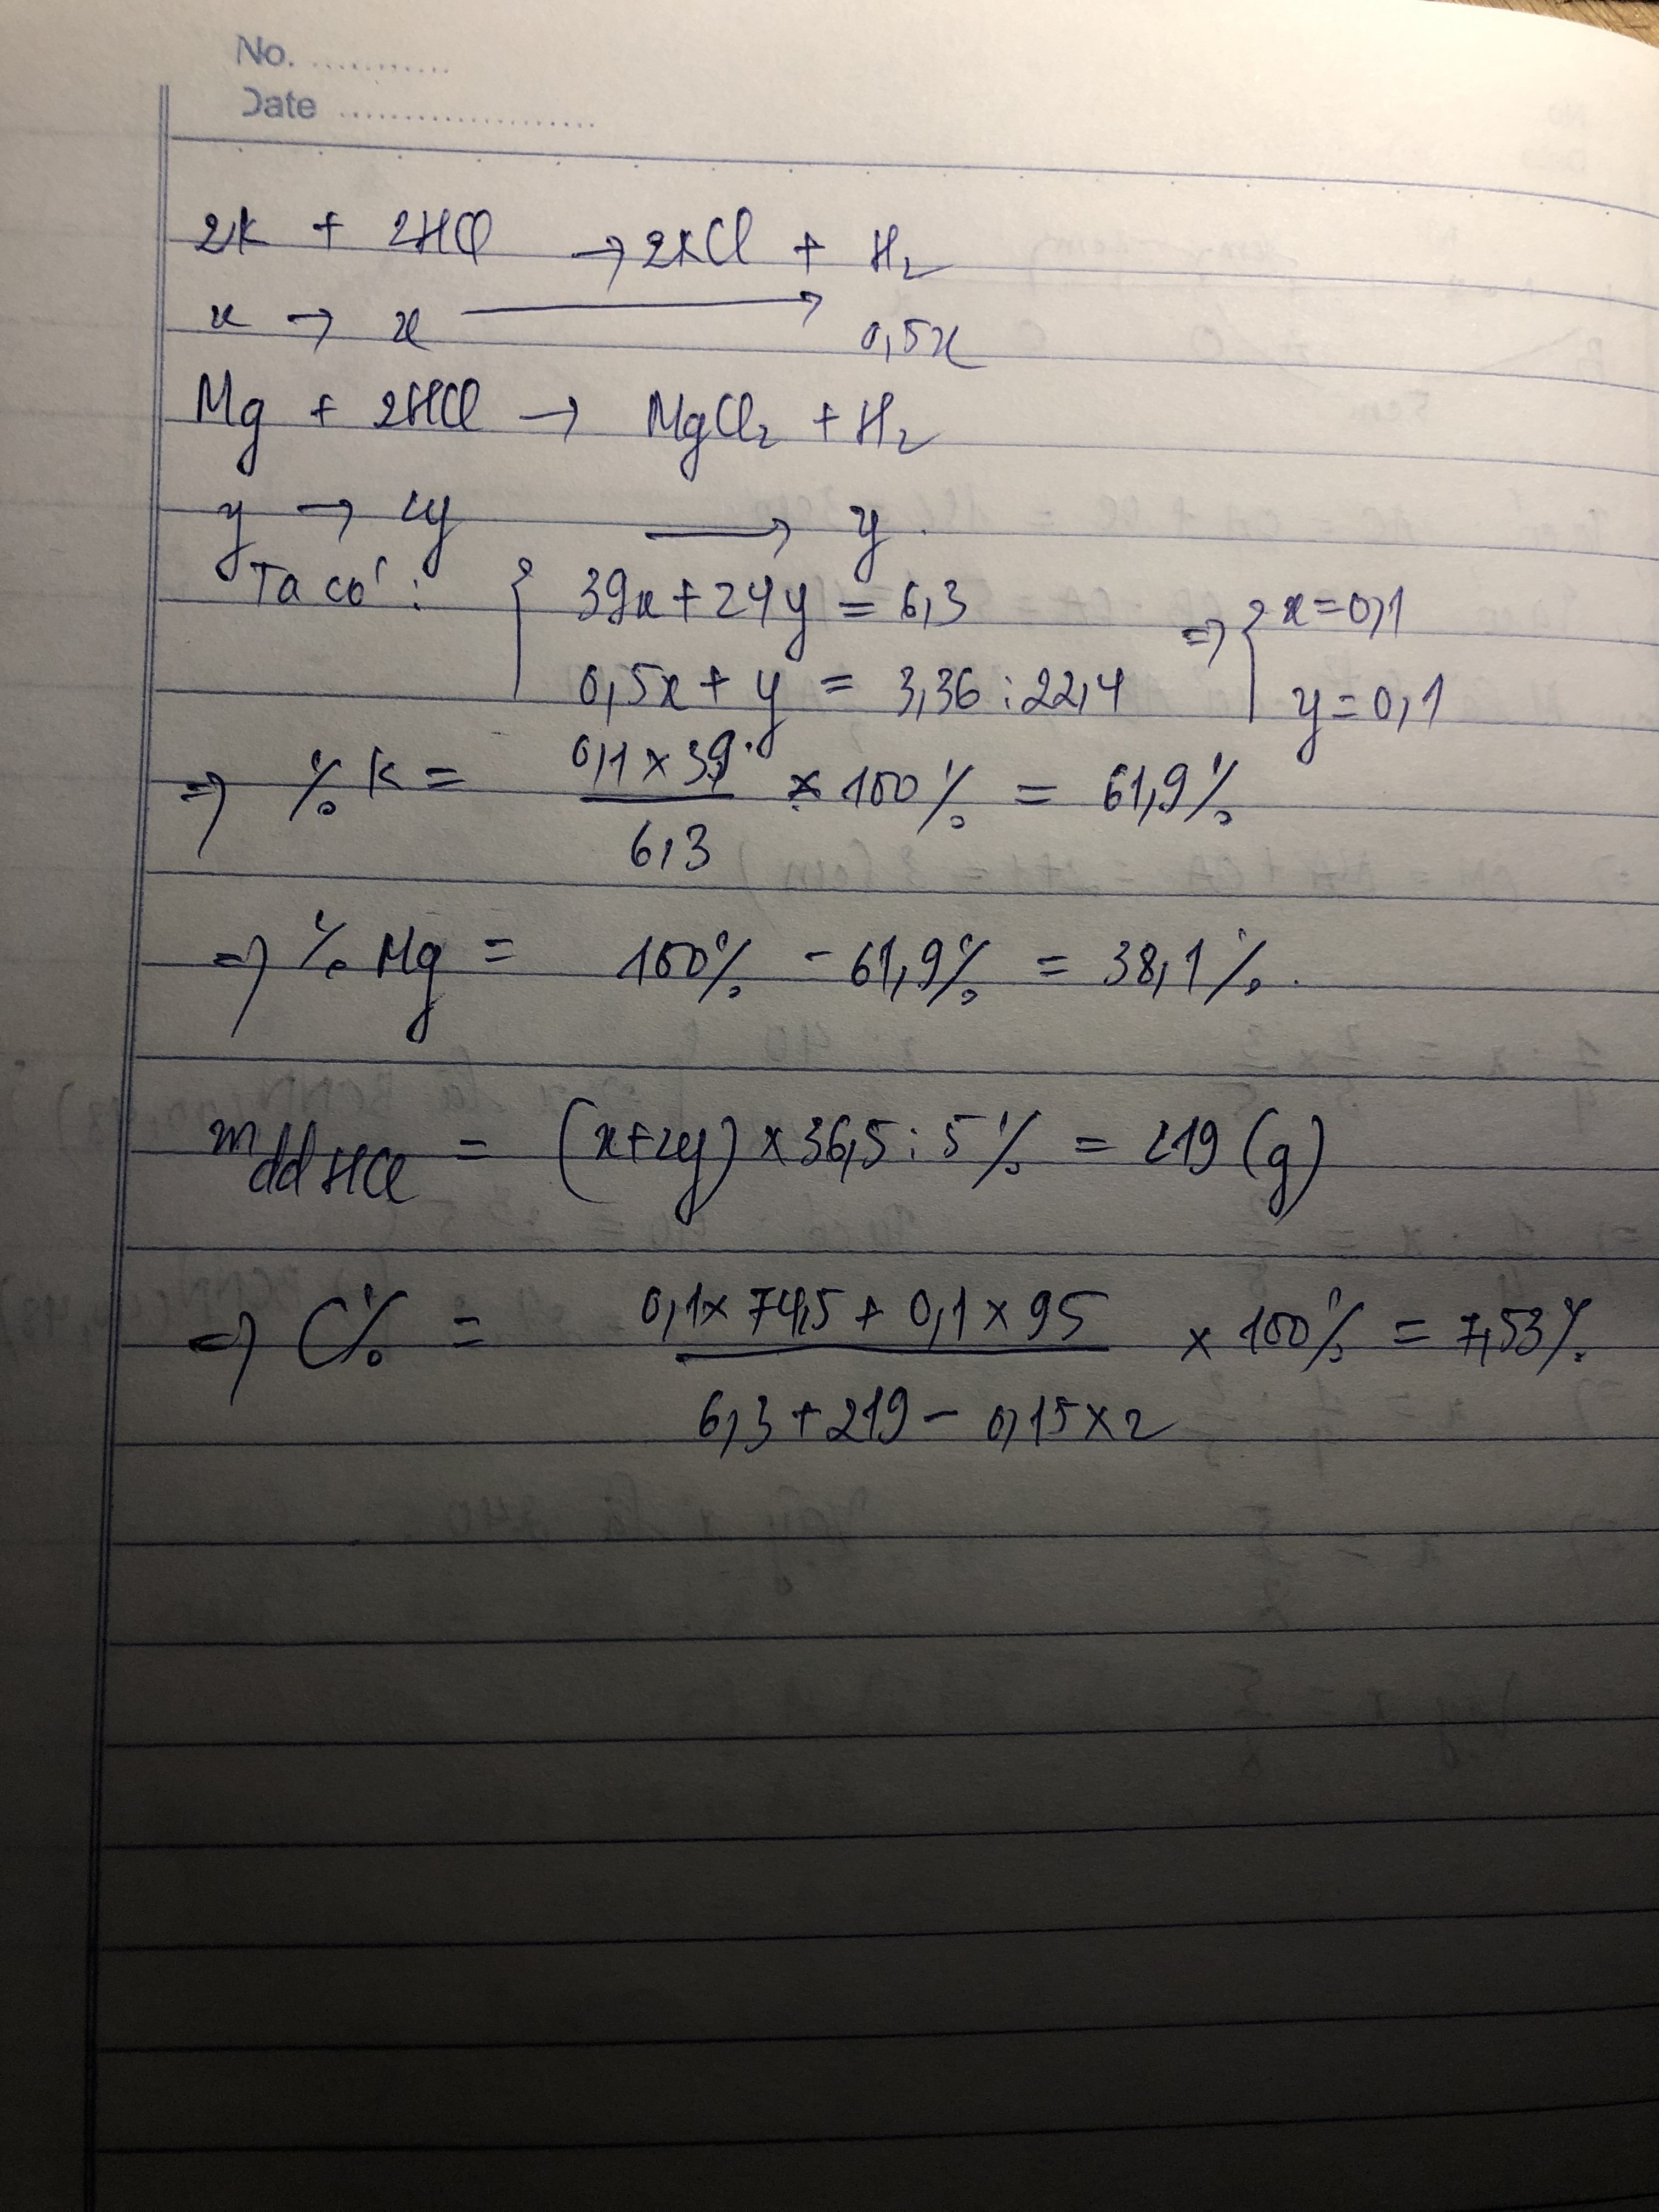 No. ...........
Date .....................
2K + 2HCl → 2KCl + H₂
x → x ⟶ 0,5x
Mg + 2HCl → MgCl₂ + H₂
y → 2y ⟶ y
Ta có: { 39x + 24y = 6,3 ⇒ { x = 0,1
0,5x + y = 3,36 : 22,4 y = 0,1
⇒ % K = 0,1 x 39 / 6,3 x 100% = 61,9%
⇒ % Mg = 100% - 61,9% = 38,1%.
m dd HCl = (x+2y) x 36,5 : 5% = 219 (g)
⇒ C% = 0,1 x 74,5 + 0,1 x 95 / 6,3 + 219 - 0,15 x 2 x 100% = 7,53%.